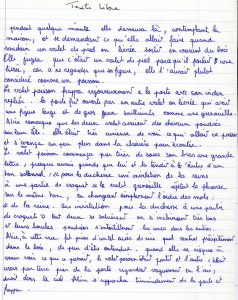 Texte libre
pendant quelques minutes elle demeura là, contemplant la
maison, et se demandant ce qu'elle allait faire quand
soudain un valet de pied en livrée sortit en courant du bois
Elle jugea que c'était un valet de pied parce qu'il portait une
livrée, car à ne regarder que sa figure, elle l'aurait plutôt
considéré comme un poisson
Le valet poisson frappa vigoureusement à la porte avec son index
replié. La porte fut ouverte par un autre valet en livrée qui avait
une figure large et de gros yeux saillants comme une grenouille.
Alice remarqua que les deux valets avaient des cheveux poudrés
sur leur tête. elle était très curieuse de voir ce que allait se passer
et s'avança un peu plus dans la clairière pour écouter.
Le valet poisson commença par tirer de sous son bras une grande
lettre, presque aussi grande que lui et la tendit à l'autre d'un
ton solennel, : pour la duchesse une invitation de la reine
à une partie de croquet. Le valet grenouille répéta la phrase
sur le même ton, en changeant simplement l'ordre des mots :
de la reine. Une invitation pour la duchesse à une partie
de croquet. tous deux se saluèrent en s'inclinant très bas
et leurs boucles poudrées s'entremêlèrent les unes dans les autres.
Alice, à cette vue, fut prise d'un tel accès de rire quel rentrer précipitamment
dans le bois, de peur d'être entendue. quand elle se risqua à
venir voir ce qui se passait, le valet poisson était parti et l'autre s'était
assis par terre près de la porte regardant vaguement en l'air,
dans le ciel Alice s'approcha timidement de la porte et
frappa.